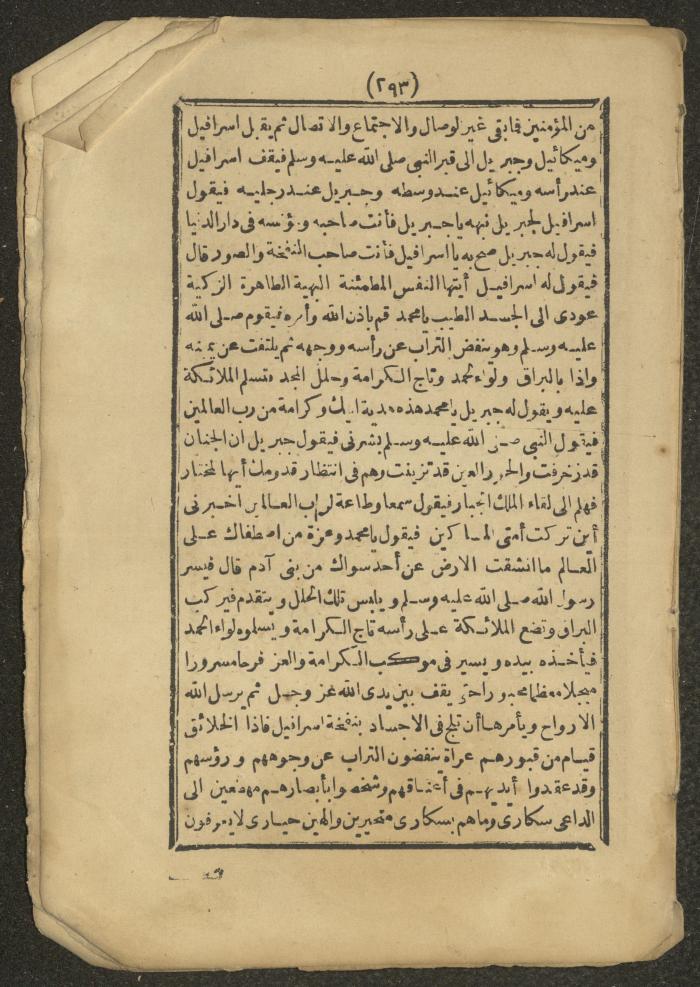 (٢٩٣)
من المؤمنين فابقى غير لوصال والاجتماع والاتصال ثم يقبل اسرافيل
وميكائيل وجبريل الى قبر النبى صلى الله عليه وسلم فيقف اسرافيل
عند رأسه وميكائيل عند وسطه وجبريل عند رجليه فيقول
اسرافيل لجبريل نبهه ياجبريل فأنت صاحبه ومؤنسه فى دار الدنيا
فيقول له جبريل صح به يااسرافيل فأنت صاحب النفخة والصور قال
فيقول له اسرافيل أيتها النفس المطمئنة البهية الطاهرة الزكية
عودى الى الجسد الطيب يامحمد قم باذن الله وأمره فيقوم صلى الله
عليه وسلم وهو ينفض التراب عن رأسه ووجهه ثم يلتفت عن يمينه
واذا بالبراق ولواء الحمد وتاج الكرامة وحلل المجد وتسلم الملائكة
عليه ويقول له جبريل يامحمد هذه هدية اليك وكرامة من رب العالمين
فيقول النبى صلى الله عليه وسلم بشرنى فيقول جبريل ان الجنان
قد زخرفت والحور العين قد تزينت وهم فى انتظار قدومك أيها المختار
فهلم الى لقاء الملك الجبار فيقول سمعا وطاعة لرب العالمين اخبرنى
أين تركت أمتى المساكين فيقول يامحمد وعزة من اصطفاك على
العالم ماانشقت الارض عن أحد سواك من بنى آدم قال فيسر
رسول الله صلى الله عليه وسلم ويلبس تلك الحلل ويتقدم فيركب
البراق وتضع الملائكة على رأسه تاج الكرامة ويسلموه لواء الحمد
فيأخذه بيده ويسير فى موكب الكرامة والعز فرحا مسرورا
مبجلا معظما محبورا حتى يقف بين يدى الله عز وجل ثم يرسل الله
الارواح ويأمرها أن تلج فى الاجساد بنفخة اسرافيل فاذا الخلائق
قيام من قبورهم عراة ينفضون التراب عن وجوههم ورؤسهم
وقد عقدوا أيديهم فى أعناقهم وشخصوا بأبصارهم مهطعين الى
الداعى سكارى وماهم بسكارى متحيرين والهين حيارى لايعرفون